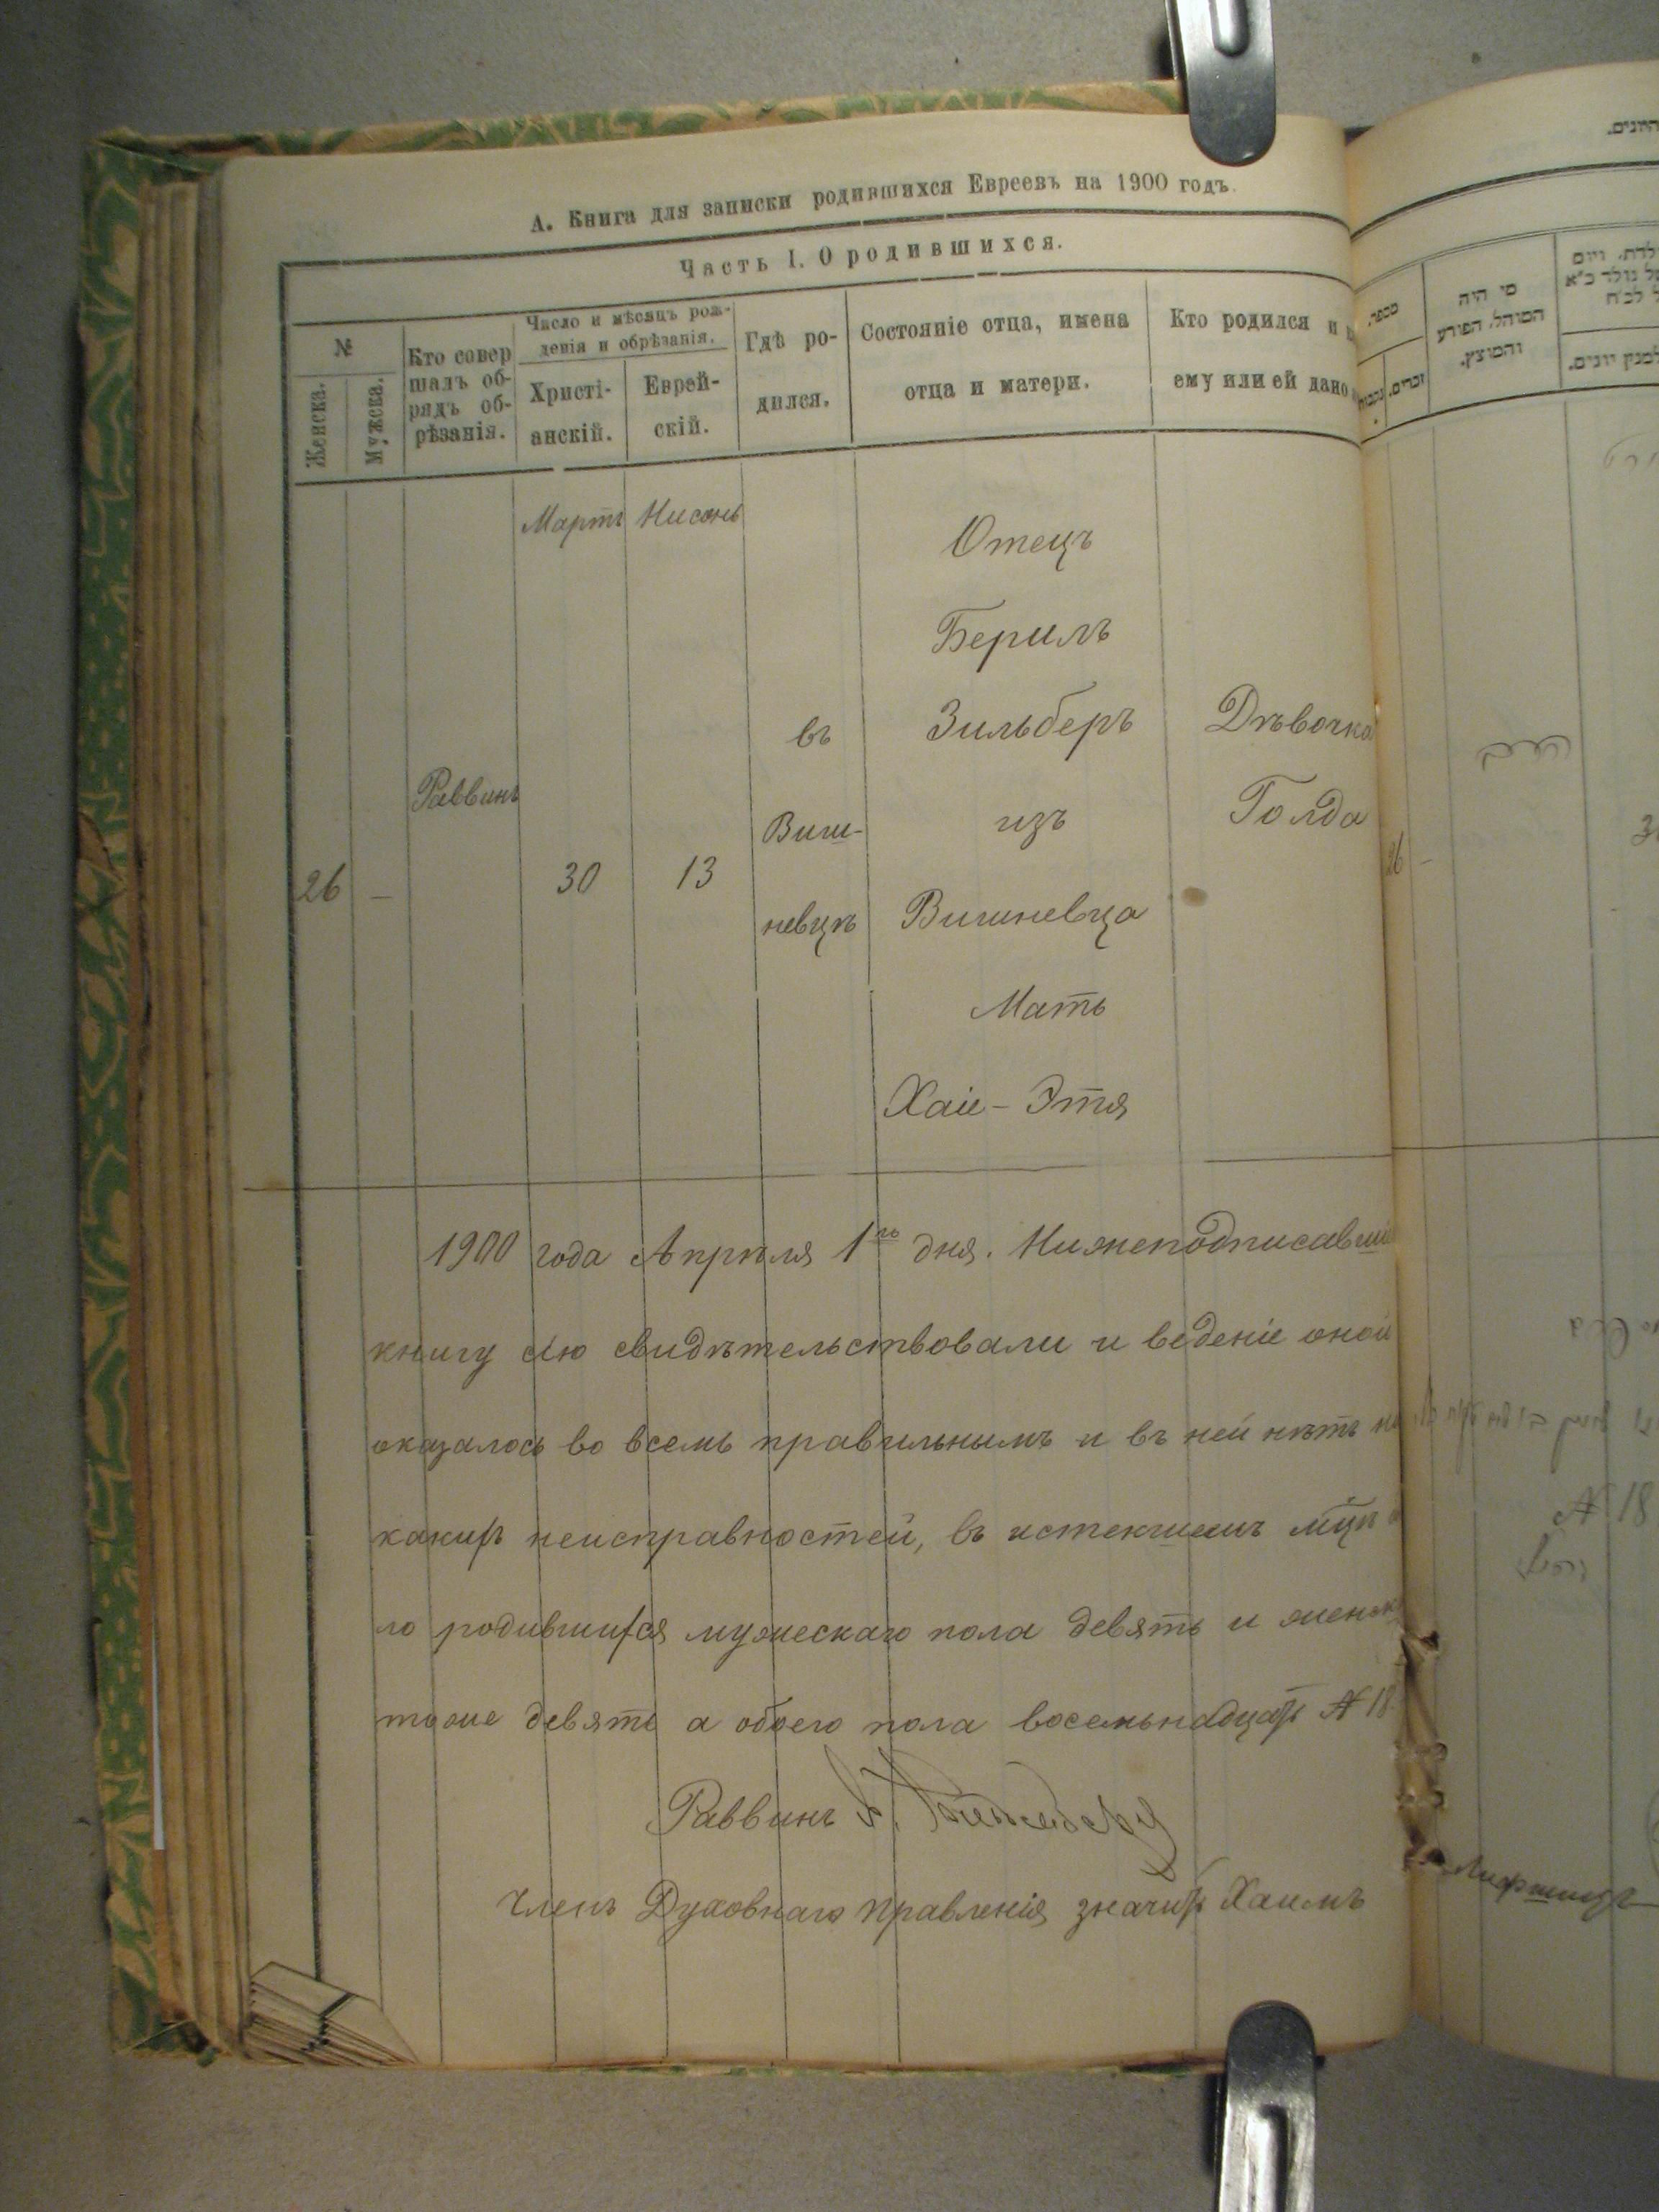 А. Книга для записки родившихся Евреевъ на 1900 годъ.
Часть I. О родившихся.
№
Женска.
Мужска.
Кто совер
шалъ об-
рядъ об-
рѣзанія.
Число и мѣсяцъ рож-
денія и обрѣзанія.
Христі-
анскій.
Еврей-
скій.
Гдѣ ро-
дился.
Состояніе отца, имена
отца и матери.
Кто родился и
ему или ей дано
Мартъ Нисонь
26 —
Раввинъ
30
13
въ
Виш-
невцѣ
Отецъ
Берилъ
Зильберъ
изъ
Вишневца
Мать
Хаіе - Этя
Дѣвочка
Голда
1900 года Апрѣля 1го дня. Нижеподписавшіе
книгу сію свидѣтельствовали и веденіе оной
оказалось во всемъ правильнымъ и въ ней нѣтъ ни
какихъ неисправностей, въ истекшемъ мцѣ
ло родившихся мужескаго пола девять и женск
тоже девять а обоего пола восемьнадцать № 18
Раввинъ
Членъ Духовнаго правленія значитъ Хаимъ
היונים.
מספר.
זכרים.
נקבות
מי היה
המוהל, הפורע
והמוצץ.
למנין יונים.
26 —
№ 18
Лифшицъ